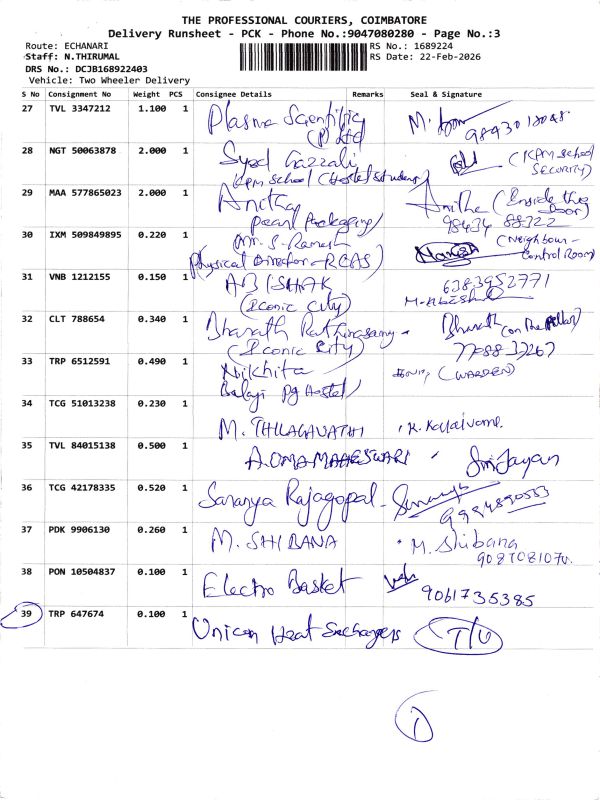 THE PROFESSIONAL COURIERS, COIMBATORE
Delivery Runsheet - PCK - Phone No.:9047080280 - Page No.:3
Route: ECHANARI RS No.: 1689224
Staff: N.THIRUMAL RS Date: 22-Feb-2026
DRS No.: DCJB168922403
Vehicle: Two Wheeler Delivery
S No Consignment No Weight PCS Consignee Details Remarks Seal & Signature
27 TVL 3347212 1.100 1 Plasma Scientific
(P) Ltd
28 NGT 50063878 2.000 1 Syed Gazzali (KPM School
KPM School (Hostel Student) SECURITY)
29 MAA 577865023 2.000 1 Anitha Anitha (Inside the
Pearl Packaging) Door)
98434 88322
30 IXM 509849895 0.220 1 Mr. S. Ramesh (Neighbour -
(Physical Director - RCAS) Control Room)
31 VNB 1212155 0.150 1 ABISHAK 6383952771
(Iconic City)
32 CLT 788654 0.340 1 Bharath Rathinasamy - Bharath
(Iconic City) 7788 37267
33 TRP 6512591 0.490 1 Nikhita (WARDEN)
Balaji Pg Hostel)
34 TCG 51013238 0.230 1 M. THILAGAVATHI
35 TVL 84015138 0.500 1
36 TCG 42178335 0.520 1 Saranya Rajagopal -
9994890553
37 PDK 9906130 0.260 1 M. SHIBANA M. Shibana
38 PON 10504837 0.100 1 Electro Basket
9061735385
39 TRP 647674 0.100 1 Unicon Heat Exchangers T/U
1